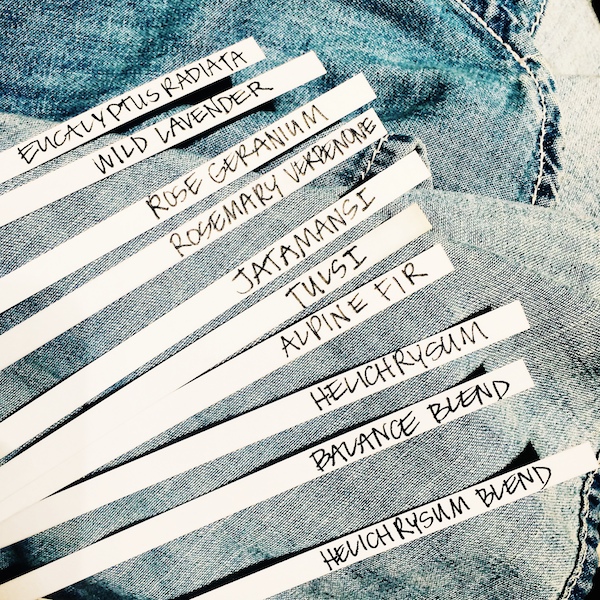 EUCALYPTUS RADIATA
WILD LAVENDER
ROSE GERANIUM
ROSEMARY VERBENONE
JATAMANSI
TULSI
ALPINE FIR
HELICHRYSUM
BALANCE BLEND
HELICHRYSUM BLEND